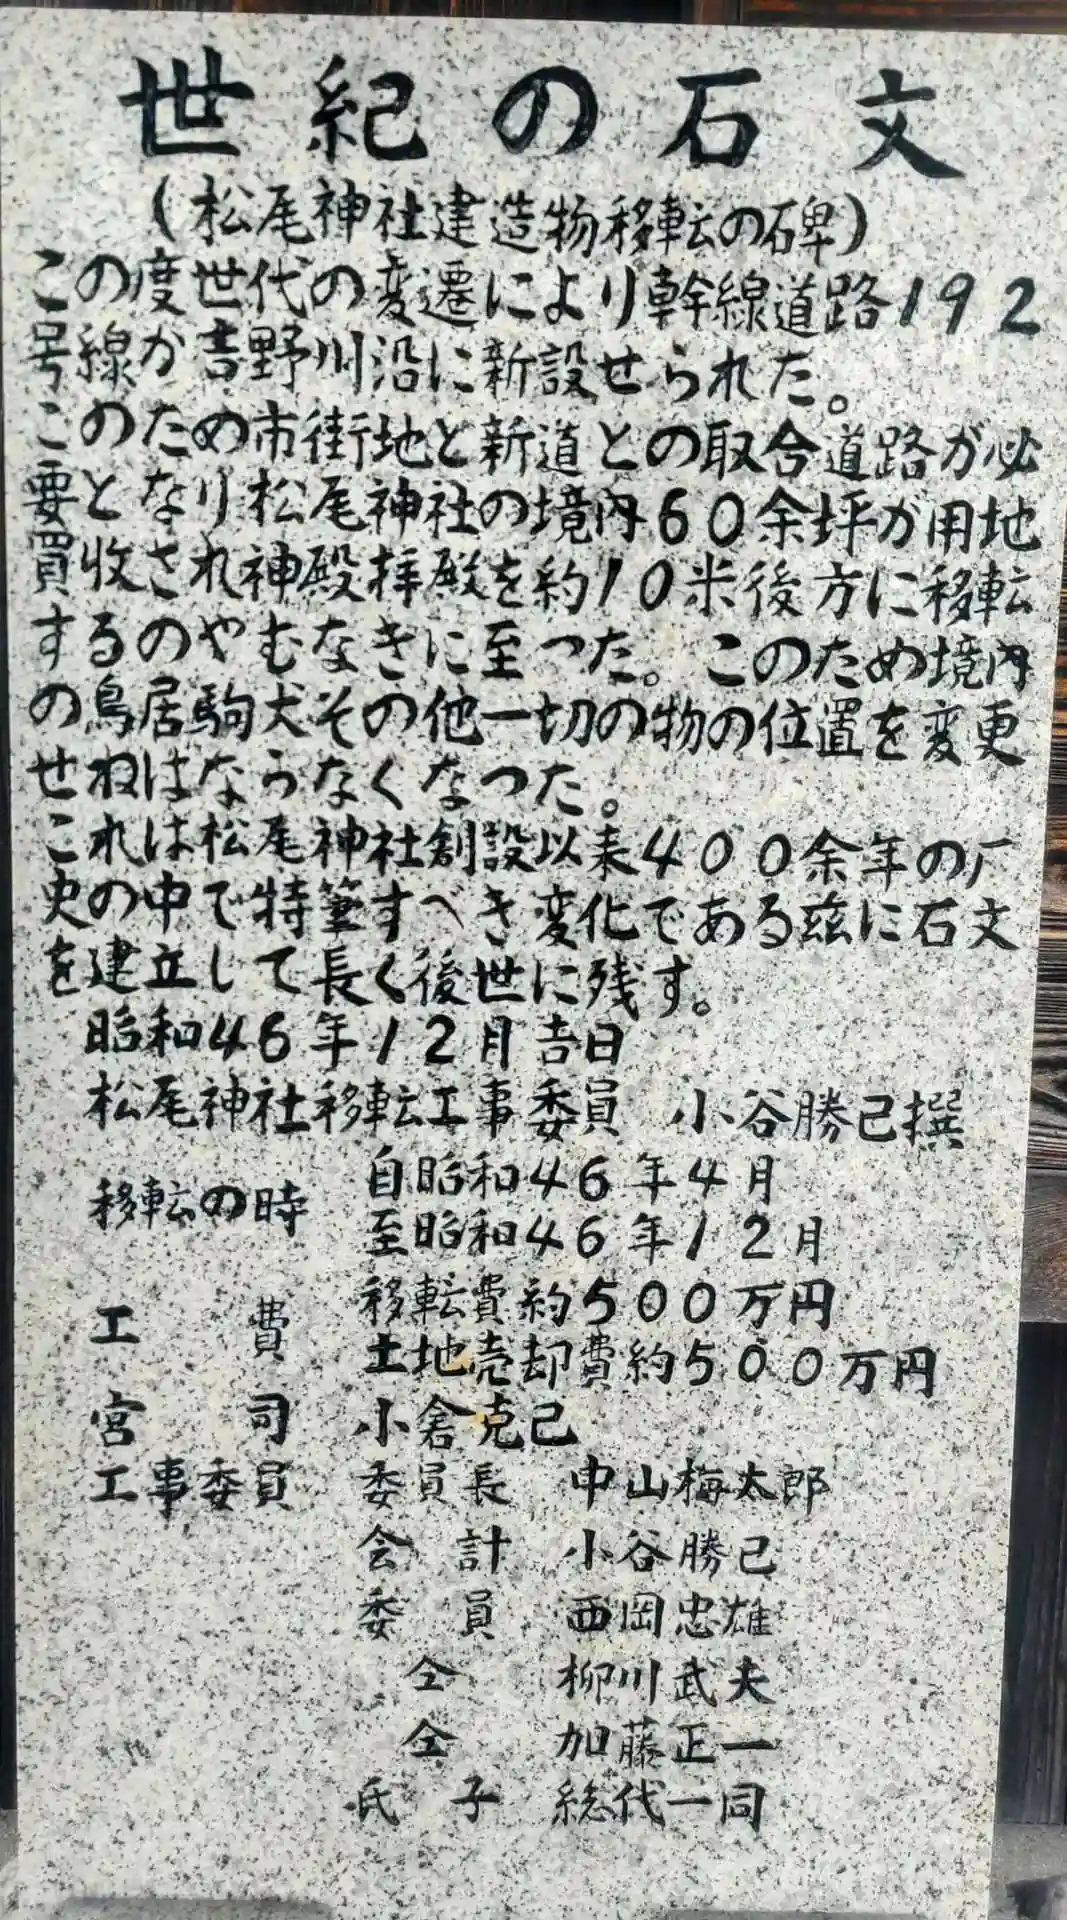 世紀の石文
(松尾神社建造物移転の碑)
この度世代の変遷により幹線道路192
号線か吉野川沿に新設せられた。
このため市街地と新道との取合道路が必
要となり松尾神社の境内60余坪が用地
買収され神殿拝殿を約10米後方に移転
するのやむなきに至つた。このため境内
の鳥居駒犬その他一切の物の位置を変更
せねはならなくなつた。
これは松尾神社創設以来400余年の厂
史の中で特筆すべき変化である茲に石文
を建立して長く後世に残す。
昭和46年12月吉日
松尾神社移転工事委員 小谷勝己撰
移転の時 自昭和46年4月
至昭和46年12月
工費 移転費約500万円
土地売却費約500万円
宮司 小倉克己
工事委員 委員長 中山梅太郎
会計 小谷勝己
委員 西岡忠雄
仝 柳川武夫
仝 加藤正一
氏子 総代一同